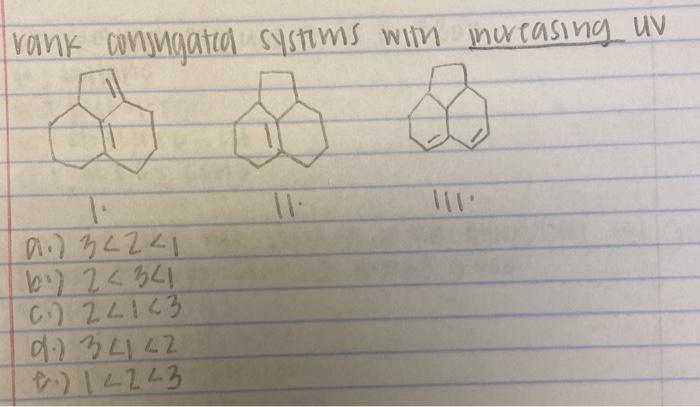 rank conjugated systems with increasing uv
I. II. III.
a.) 3<2<1
b.) 2<3<1
c.) 2<1<3
d.) 3<1<2
e.) 1<2<3